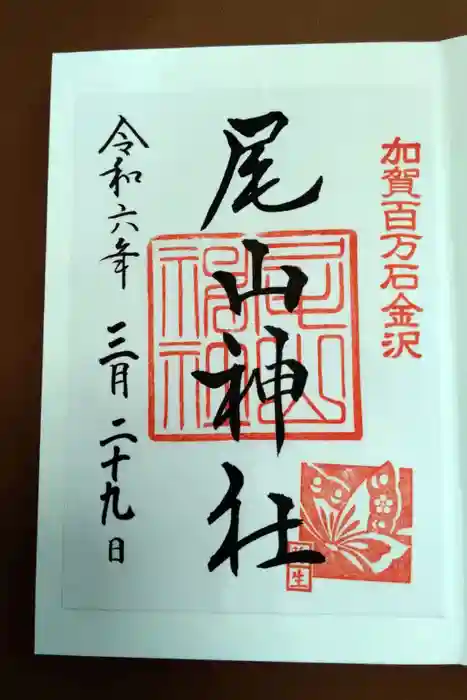 加賀百万石金沢
尾山神社
尾山神社
令和六年 三月二十九日